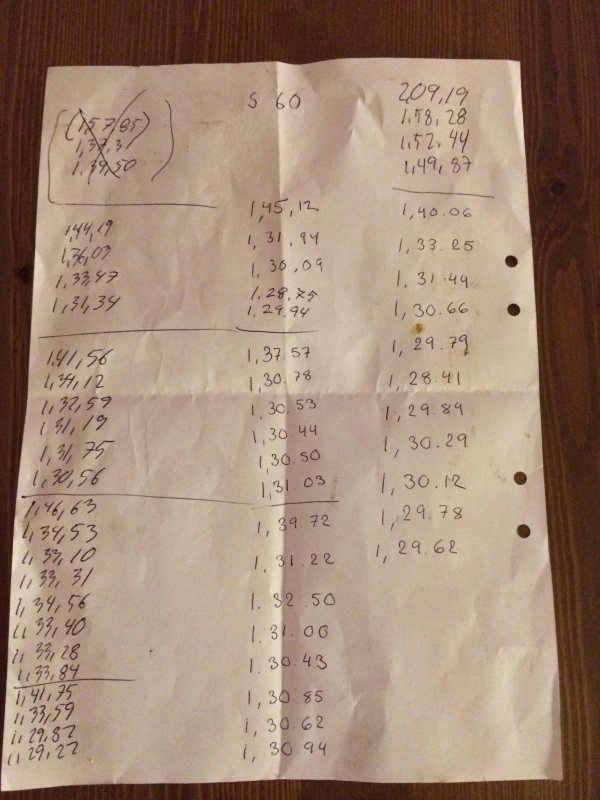 (1,57,85)
1,37,31
1,34,50
1,44,19
1,36,03
1,33,47
1,31,34
1,41,56
1,34,12
1,32,59
1,31,19
1,31,75
1,30,56
1,46,63
1,34,53
1,33,10
1,33,31
1,34,56
1,33,40
1,33,28
1,33,84
1,41,75
1,33,59
1,29,82
1,29,22
S 60
1,45,12
1,31,94
1,30,09
1,28.75
1,29.94
1,37.57
1,30.78
1,30.53
1,30.44
1,30.50
1,31.03
1,39.72
1,31.22
1.32.50
1.31.00
1.30.43
1,30.85
1,30.62
1,30.94
2,09,19
1,58,28
1,52,44
1,49,87
1,40.06
1,33.25
1,31.44
1,30.66
1,29.79
1,28.41
1,29.84
1,30.29
1,30.12
1,29.78
1,29.62